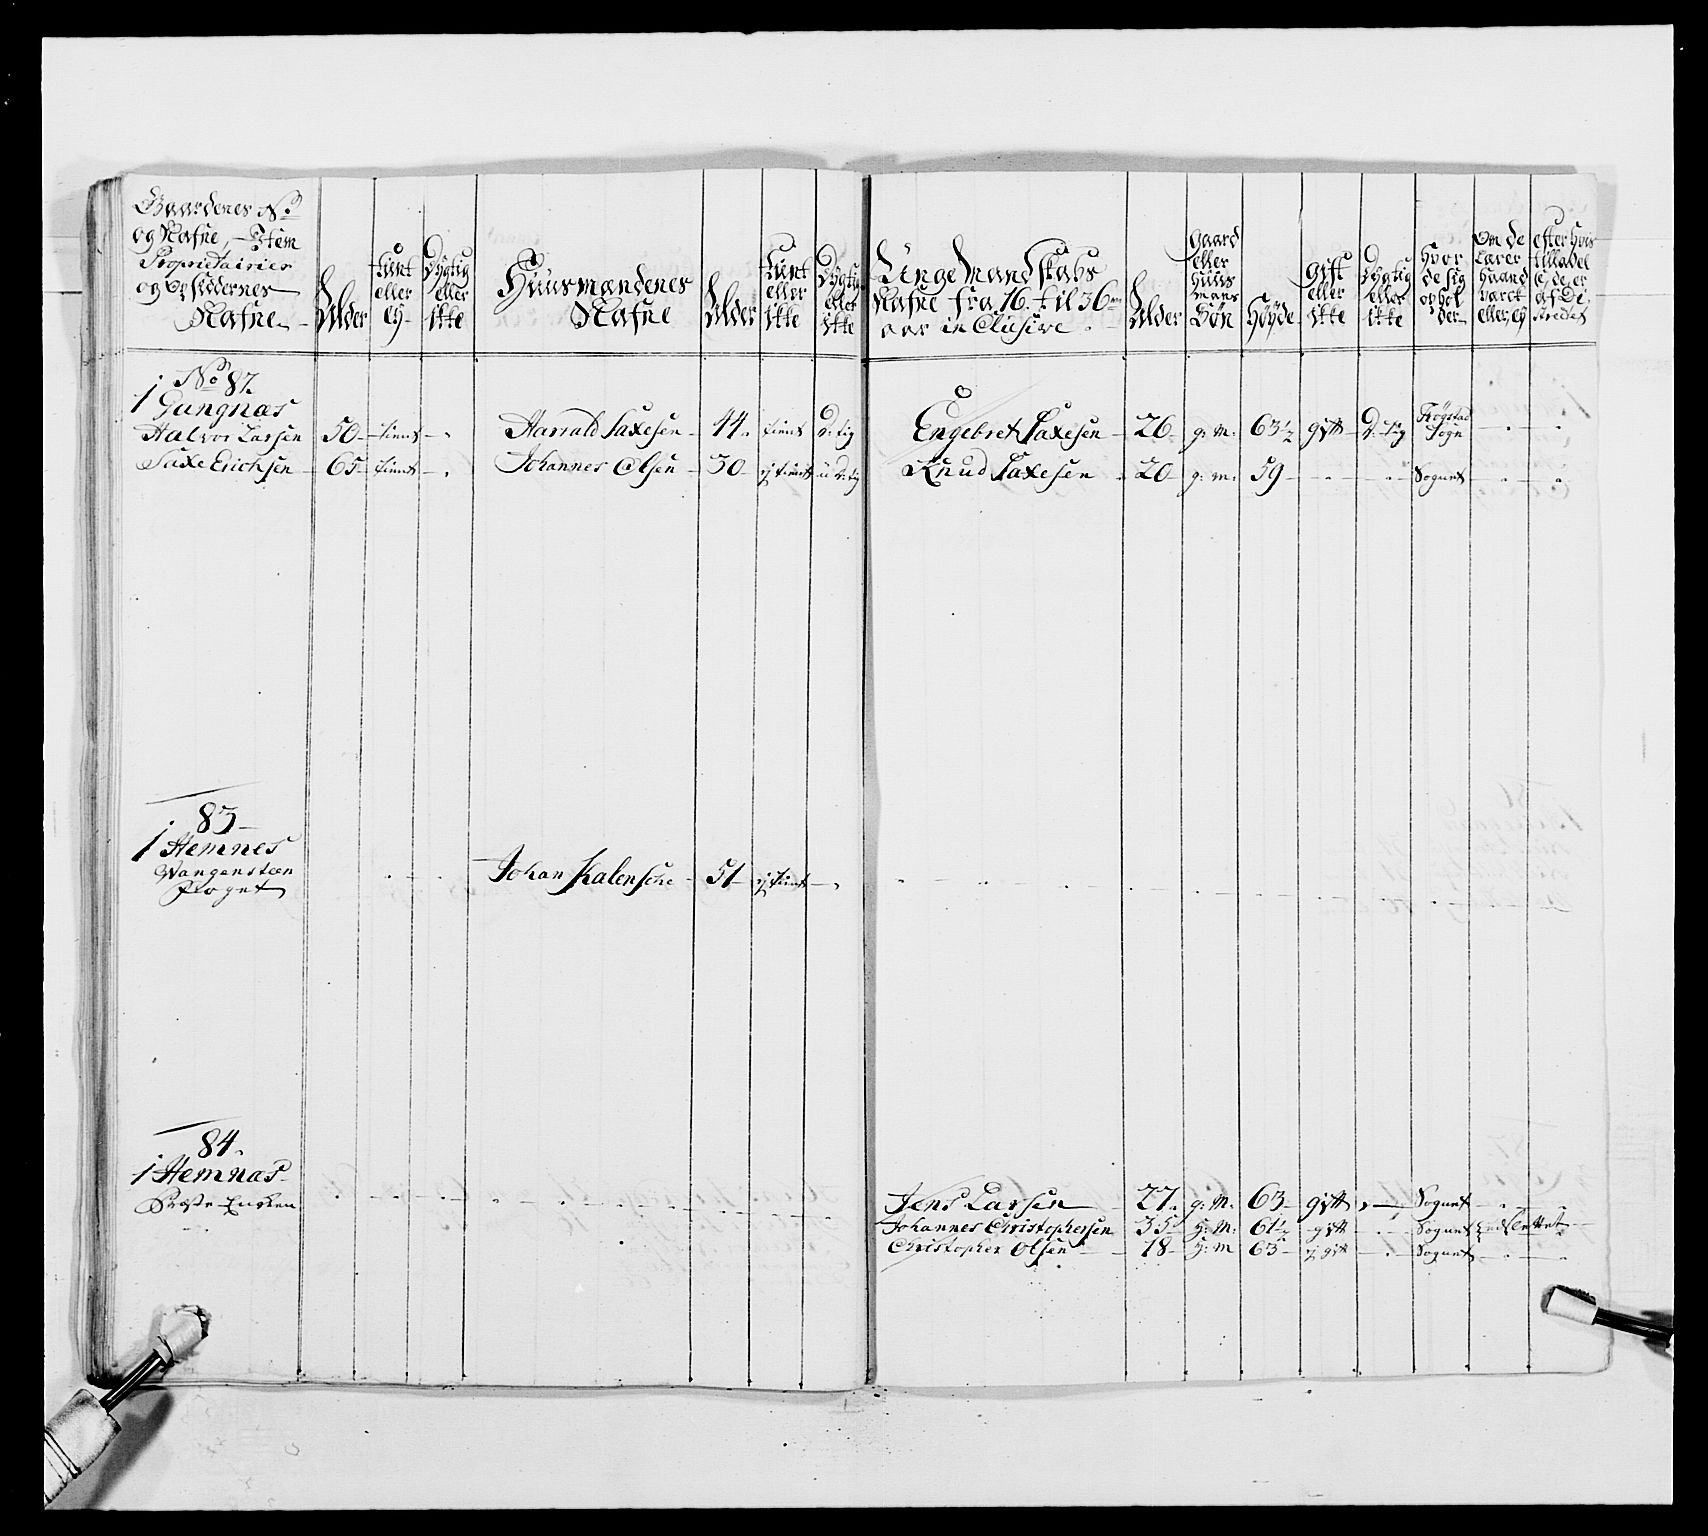 Gaardenes No
og Nafne, Item
Proprietairies
og Opsidernes
Nafne
Alder
tient
eller
ey
Dygtig
eller
ikke
Huusmændenes
Nafne
Alder
tient
eller
ikke
Dygtig
eller
ikke
Unge Mandskabs
Nafne fra 16 til 36
aar inClusive
Alder
gaard
eller
Huus
mans
Søn
Høyde
gift
eller
ikke
Dygtig
eller
ikke
Hvor
de sig
ophol
der
Om de
Lærer
Haand
varck
eller ey
efter Hvis
tilladel
se de er
af Di-
strictet
No 82
1 Gangnæs
Halvor Larsen 50 tient
Harrald Saxesen 44 tient D:tig
Engebret Saxesen 26 g: M: 63½ gift D:tig Trøgstad Sogn
Saxe Erichsen 65 tient
Johannes Olsen 30 ej tient u D:tig
Knud Saxesen 20 g: M: 59 Sognet
83
1 Hemnes
Wangensteen
Foget
Johan Kalensche 51 ej tient
84
1 Hemnæs
Præste Encken
Jens Larsen 27 g: M: 63 gift Sognet
Johannes Christophersen 35 g: M: 61½ gift Sognet
Christopher Olsen 18 g: M 63 ej gift Sognet